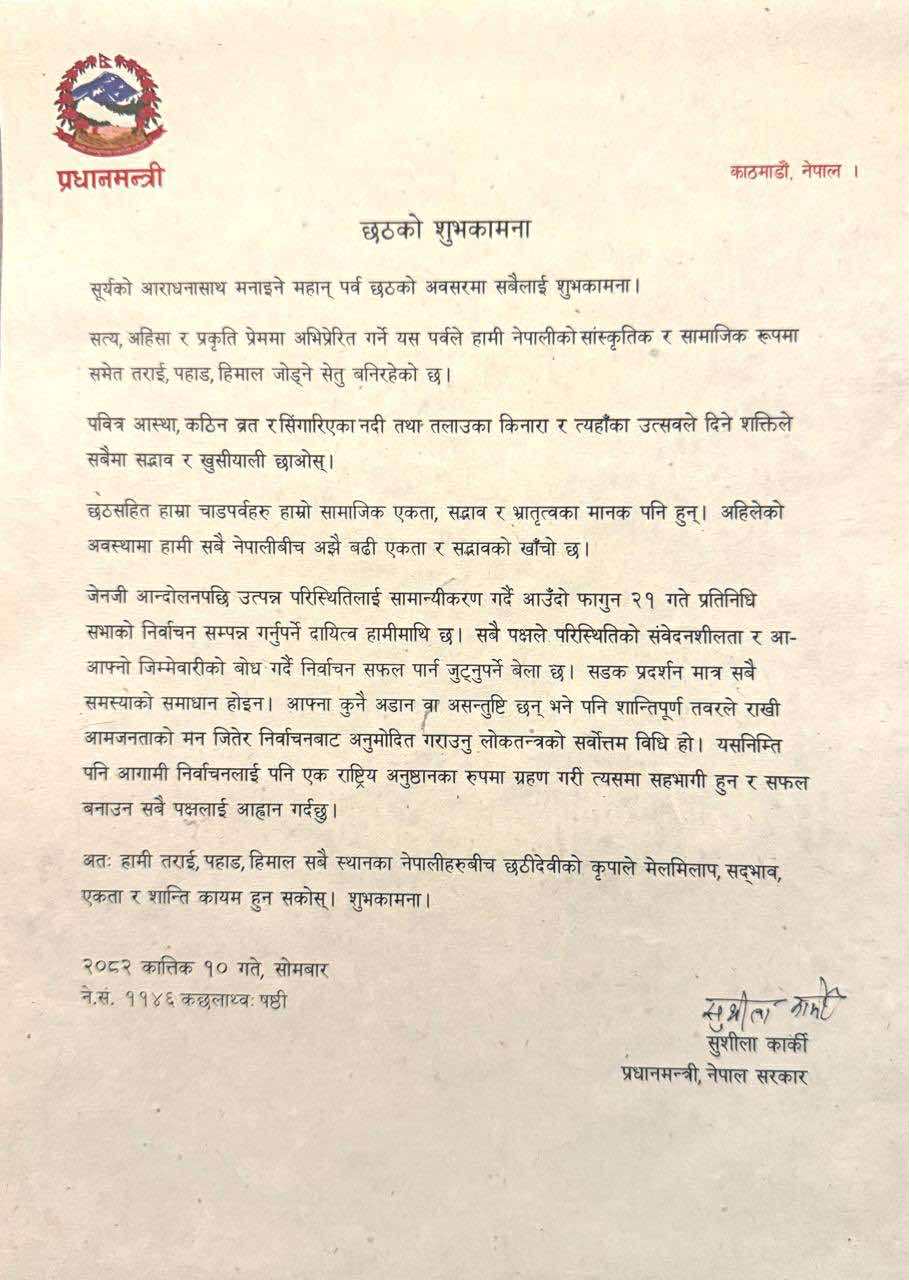 प्रधानमन्त्री
काठमाडौं, नेपाल ।
छठको शुभकामना
सूर्यको आराधनासाथ मनाइने महान् पर्व छठको अवसरमा सबैलाई शुभकामना।
सत्य, अहिंसा र प्रकृति प्रेममा अभिप्रेरित गर्ने यस पर्वले हामी नेपालीको सांस्कृतिक र सामाजिक रूपमा
समेत तराई, पहाड, हिमाल जोड्ने सेतु बनिरहेको छ।
पवित्र आस्था, कठिन व्रत र सिंगारिएका नदी तथा तलाउका किनारा र त्यहाँका उत्सवले दिने शक्तिले
सबैमा सद्भाव र खुसीयाली छाओस्।
छठसहित हाम्रा चाडपर्वहरु हाम्रो सामाजिक एकता, सद्भाव र भ्रातृत्वका मानक पनि हुन्। अहिलेको
अवस्थामा हामी सबै नेपालीबीच अझै बढी एकता र सद्भावको खाँचो छ।
जेनजी आन्दोलनपछि उत्पन्न परिस्थितिलाई सामान्यीकरण गर्दै आउँदो फागुन २१ गते प्रतिनिधि
सभाको निर्वाचन सम्पन्न गर्नुपर्ने दायित्व हामीमाथि छ। सबै पक्षले परिस्थितिको संवेदनशीलता र आ-
आफ्नो जिम्मेवारीको बोध गर्दै निर्वाचन सफल पार्न जुट्नुपर्ने बेला छ। सडक प्रदर्शन मात्र सबै
समस्याको समाधान होइन। आफ्ना कुनै अडान वा असन्तुष्टि छन् भने पनि शान्तिपूर्ण तवरले राखी
आमजनताको मन जितेर निर्वाचनबाट अनुमोदित गराउनु लोकतन्त्रको सर्वोत्तम विधि हो। यसनिम्ति
पनि आगामी निर्वाचनलाई पनि एक राष्ट्रिय अनुष्ठानका रुपमा ग्रहण गरी त्यसमा सहभागी हुन र सफल
बनाउन सबै पक्षलाई आह्वान गर्दछु।
अतः हामी तराई, पहाड, हिमाल सबै स्थानका नेपालीहरुबीच छठीदेवीको कृपाले मेलमिलाप, सद्‌भाव,
एकता र शान्ति कायम हुन सकोस्। शुभकामना।
२०८२ कात्तिक १० गते, सोमबार
ने.सं. ११४६ कछलाथ्वः षष्ठी
सुशीला कार्की
सुशीला कार्की
प्रधानमन्त्री, नेपाल सरकार